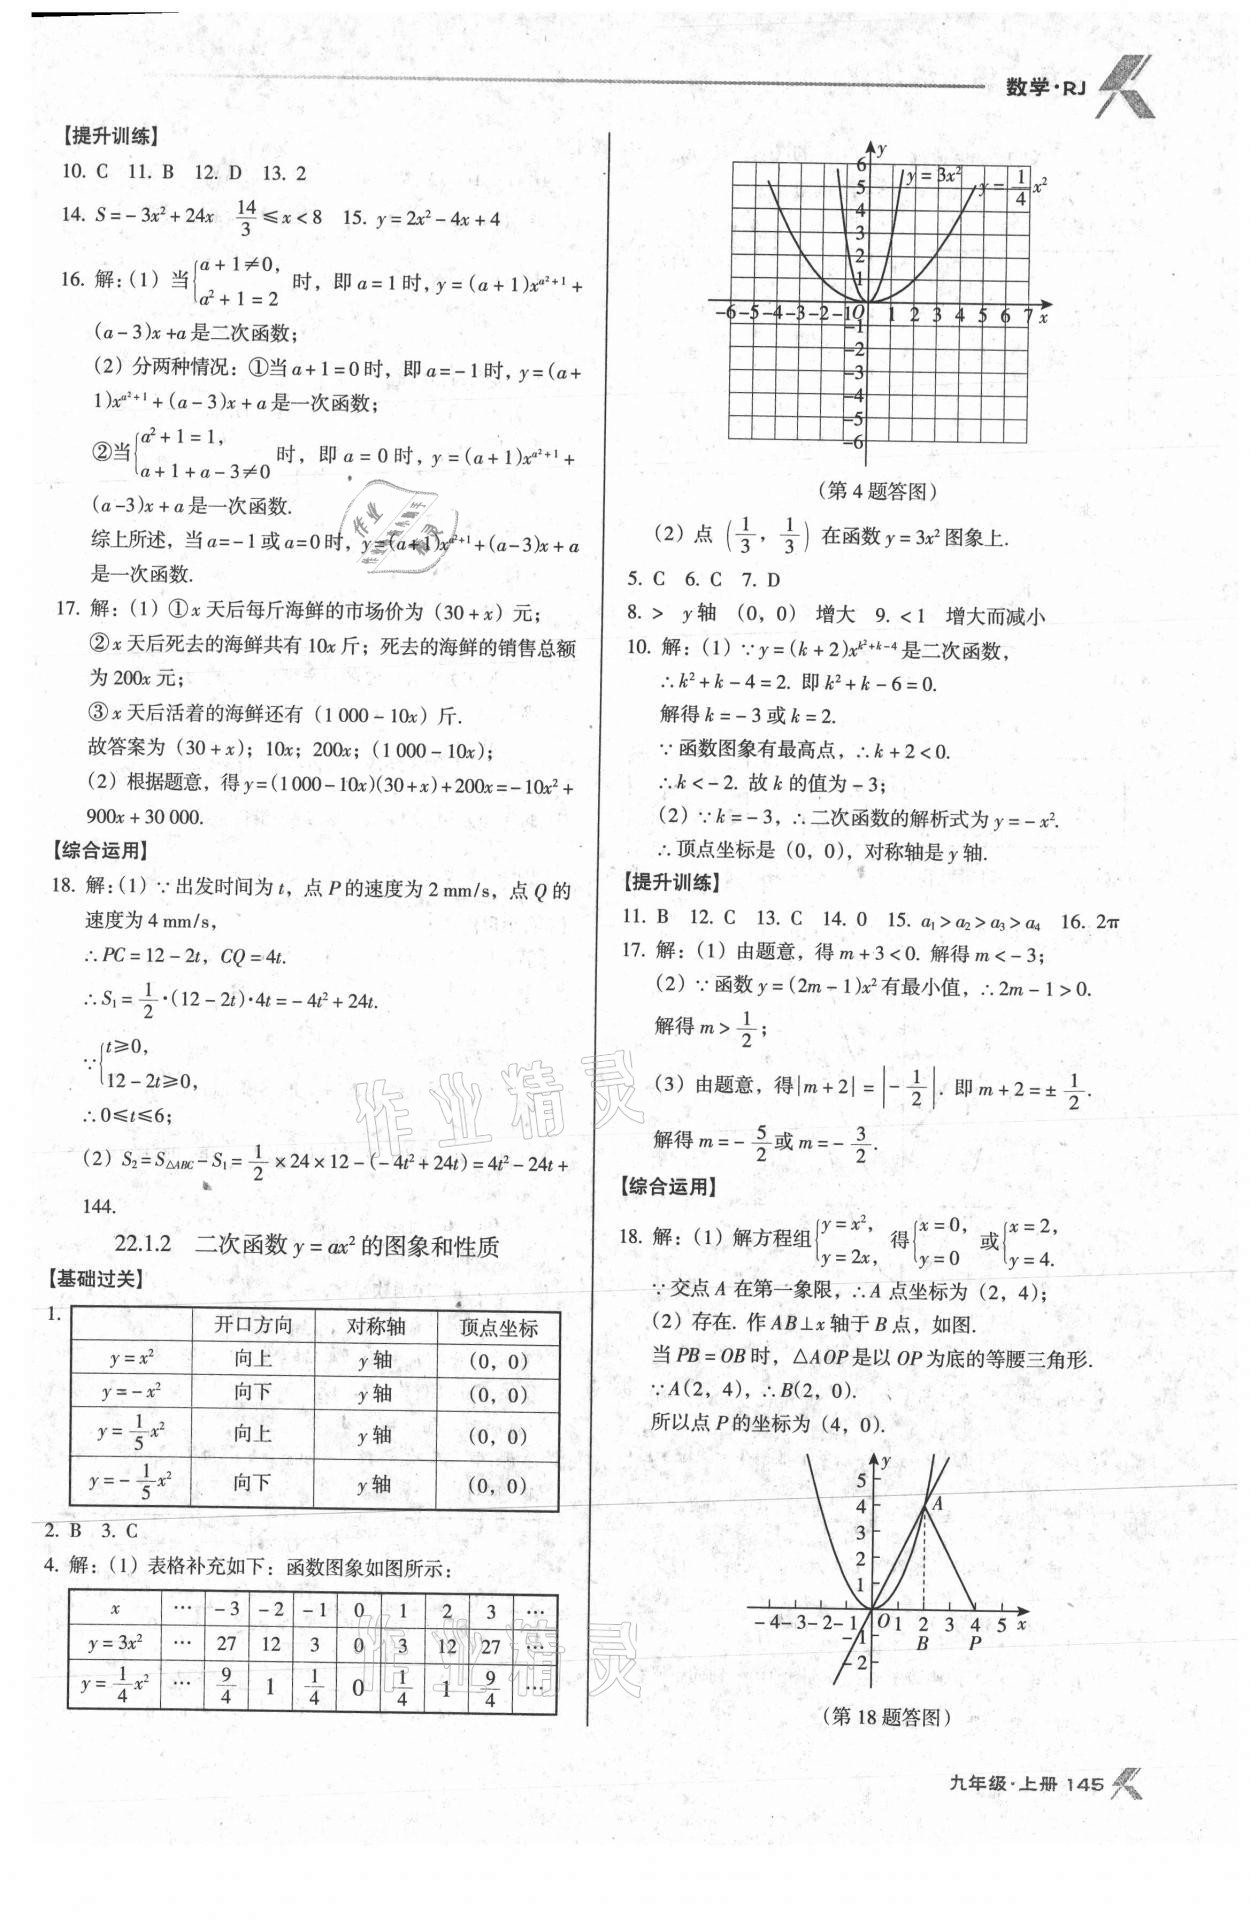 数学·RJ
【提升训练】
10. C 11. B 12. D 13. 2
14. S=-3x²+24x 14/3≤x<8 15. y=2x²-4x+4
16. 解:(1) 当{a+1≠0, a²+1=2 时, 即a=1时, y=(a+1)x^(a²+1)+
(a-3)x+a是二次函数;
(2) 分两种情况: ①当a+1=0时, 即a=-1时, y=(a+
1)x^(a²+1)+(a-3)x+a是一次函数;
②当{a²+1=1, a+1+a-3≠0 时, 即a=0时, y=(a+1)x^(a²+1)+
(a-3)x+a是一次函数.
综上所述, 当a=-1或a=0时, y=(a+1)x^(a²+1)+(a-3)x+a
是一次函数.
17. 解: (1) ①x天后每斤海鲜的市场价为(30+x)元;
②x天后死去的海鲜共有10x斤; 死去的海鲜的销售总额
为200x元;
③x天后活着的海鲜还有(1 000-10x)斤.
故答案为(30+x); 10x; 200x; (1 000-10x);
(2) 根据题意, 得y=(1 000-10x)(30+x)+200x=-10x²+
900x+30 000.
【综合运用】
18. 解:(1) ∵出发时间为t, 点P的速度为2 mm/s, 点Q的
速度为4 mm/s,
∴PC=12-2t, CQ=4t.
∴S₁=1/2·(12-2t)·4t=-4t²+24t.
∵{t≥0, 12-2t≥0,
∴0≤t≤6;
(2) S₂=S△ABC-S₁=1/2×24×12-(-4t²+24t)=4t²-24t+
144.
22.1.2 二次函数y=ax²的图象和性质
【基础过关】
1.
开口方向 对称轴 顶点坐标
y=x² 向上 y轴 (0, 0)
y=-x² 向下 y轴 (0, 0)
y=1/5x² 向上 y轴 (0, 0)
y=-1/5x² 向下 y轴 (0, 0)
2. B 3. C
4. 解: (1) 表格补充如下: 函数图象如图所示:
x … -3 -2 -1 0 1 2 3 …
y=3x² … 27 12 3 0 3 12 27 …
y=1/4x² … 9/4 1 1/4 0 1/4 1 9/4 …
y
6
5
4
3
2
1
y=3x²
y=1/4x²
-6 -5 -4 -3 -2 -1 O 1 2 3 4 5 6 7 x
-1
-2
-3
-4
-5
-6
(第4题答图)
(2) 点(1/3, 1/3)在函数y=3x²图象上.
5. C 6. C 7. D
8. > y轴 (0, 0) 增大 9. <1 增大而减小
10. 解: (1) ∵y=(k+2)x^(k²+k-4)是二次函数,
∴k²+k-4=2. 即k²+k-6=0.
解得k=-3或k=2.
∵函数图象有最高点, ∴k+2<0.
∴k<-2. 故k的值为-3;
(2) ∵k=-3, ∴二次函数的解析式为y=-x².
∴顶点坐标是(0, 0), 对称轴是y轴.
【提升训练】
11. B 12. C 13. C 14. 0 15. a₁>a₂>a₃>a₄ 16. 2π
17. 解: (1) 由题意, 得m+3<0. 解得m<-3;
(2) ∵函数y=(2m-1)x²有最小值, ∴2m-1>0.
解得m>1/2;
(3) 由题意, 得|m+2|=|-1/2|. 即m+2=±1/2.
解得m=-5/2或m=-3/2.
【综合运用】
18. 解: (1) 解方程组{y=x², y=2x, 得{x=0, y=0 或{x=2, y=4.
∵交点A在第一象限, ∴A点坐标为(2, 4);
(2) 存在. 作AB⊥x轴于B点, 如图.
当PB=OB时, △AOP是以OP为底的等腰三角形.
∵A(2, 4), ∴B(2, 0).
所以点P的坐标为(4, 0).
y
5
4
3
2
1
A
-4 -3 -2 -1 O 1 2 3 4 5 x
-1
-2
B P
(第18题答图)
作业精灵
作业精灵
九年级·上册 145